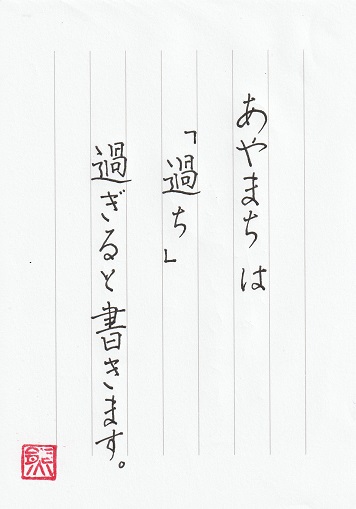 あやまちは
「過ち」
過ぎると書きます。